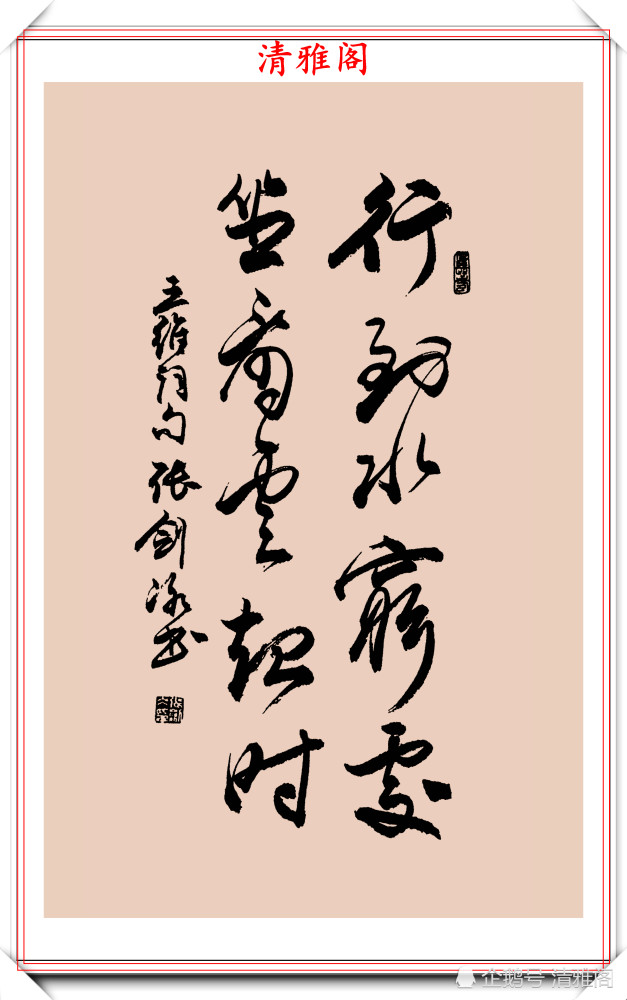 清雅阁
行到水窮處
坐看雲起时
王维诗句 张剑泳书
企鹅号 清雅阁